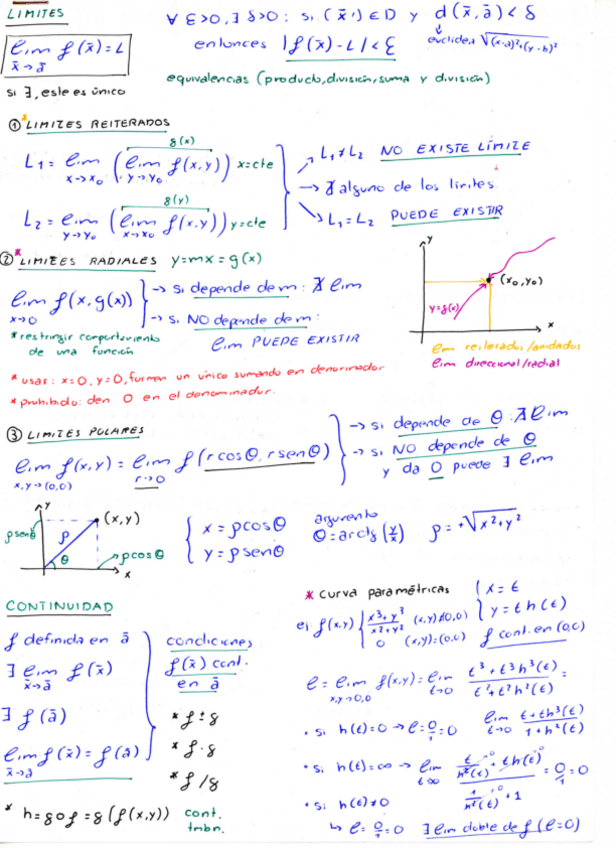 LIMITES
∀ ε>0, ∃ δ>0: si (x̄) ∈ D y d(x̄,ā) < δ
entonces |f(x̄)-L| < ε
euclídea √(x-a)²+(y-b)²
lim f(x̄)=L
x̄→ā
si ∃, este es único
equivalencias (producto, división, suma y división)
① LIMITES REITERADOS
g(x)
L₁ = lim (lim f(x,y)) x=cte
x→x₀ y→y₀
g(y)
L₂ = lim (lim f(x,y)) y=cte
y→y₀ x→x₀
→ L₁≠L₂ NO EXISTE LÍMITE
→ ∄ alguno de los límites
→ L₁=L₂ PUEDE EXISTIR
②* LIMITES RADIALES y=mx=g(x)
lim f(x,g(x))
x→0
→ si depende de m: ∄ lim
→ si NO depende de m:
lim PUEDE EXISTIR
* restringir comportamiento
de una función
* usar: x=0, y=0, formen un único sumando en denominador
* prohibido: den 0 en el denominador.
y
(x₀,y₀)
y=g(x)
x
lim reiterados/anidados
lim direccional/radial
③ LIMITES POLARES
lim f(x,y) = lim f(r cosθ, r senθ)
x,y→(0,0) r→0
→ si depende de θ: ∄ lim
→ si NO depende de θ
y da 0 puede ∃ lim
y
(x,y)
ρsenθ
ρ
θ
ρcosθ
x
x=ρcosθ
y=ρsenθ
argumento
θ=arctg(y/x)
ρ=+√x²+y²
CONTINUIDAD
f definida en ā
∃ lim f(x̄)
x̄→ā
∃ f(ā)
lim f(x̄)=f(ā)
x̄→ā
condiciones
f(x̄) cont.
en ā
* f ± g
* f · g
* f / g
* h=g∘f=g(f(x,y)) cont.
tmbn.
* curva paramétricas
x=t
y=t h(t)
ej f(x,y) { x³+y³/x²+y² (x,y)≠(0,0)
0 (x,y)=(0,0)
f cont. en (0,0)
ℓ = lim f(x,y) = lim t³+t³h³(t) / t²+t²h²(t) =
x,y→0,0 t→0
lim t+th³(t) / 1+h²(t)
t→0
• si h(t)=0 → ℓ=0/1=0
• si h(t)=∞ → lim t/h²(t) + th(t) / 1/h²(t) +1 = 0/1=0
• si h(t)≠0
↳ ℓ=0/1=0 ∃ lim doble de f (ℓ=0)